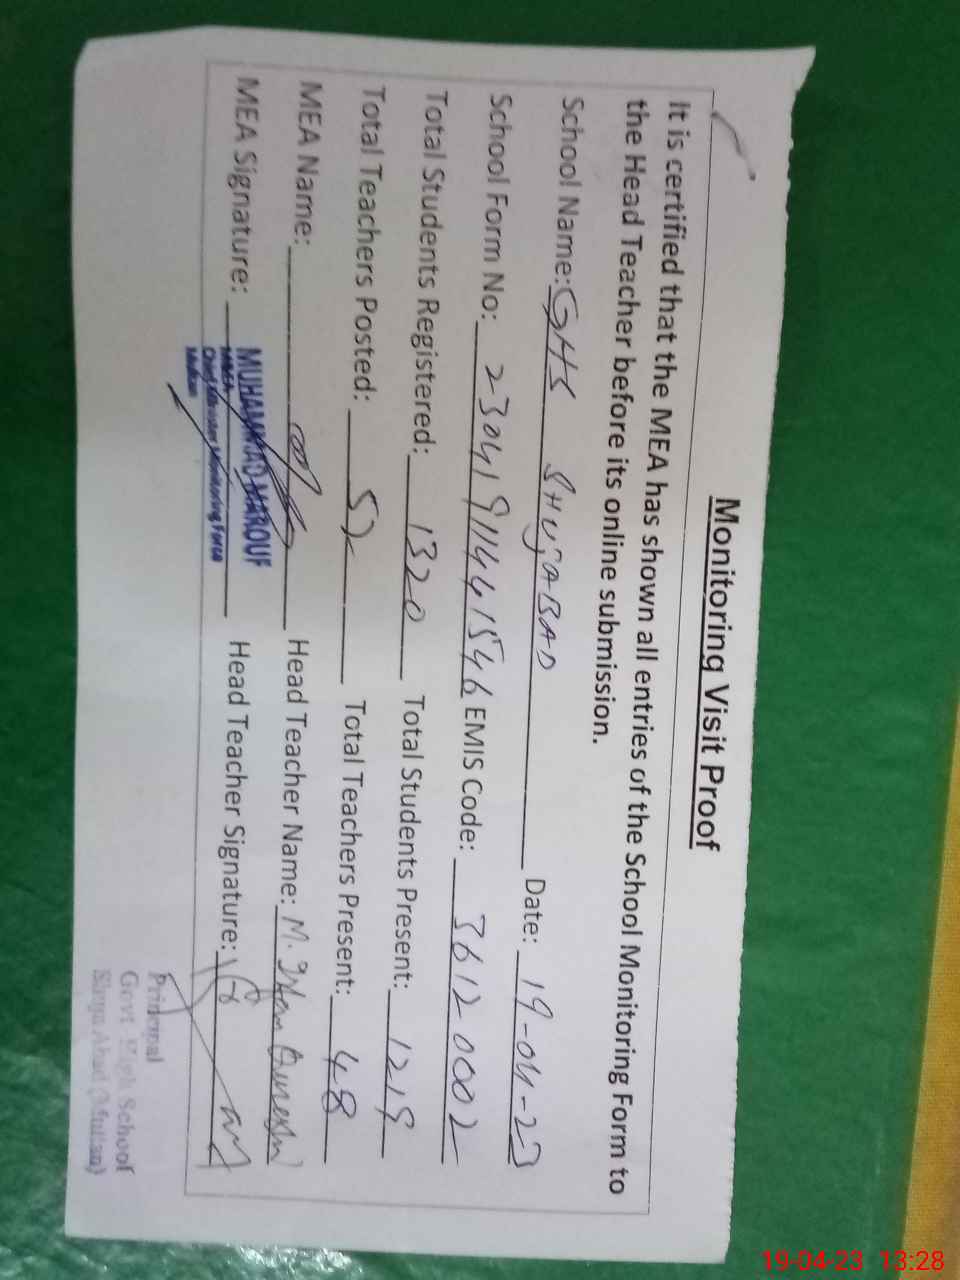 Monitoring Visit Proof
It is certified that the MEA has shown all entries of the School Monitoring Form to
the Head Teacher before its online submission.
School Name: GHS SHUJABAD Date: 19-04-23
School Form No: 230419114441546 EMIS Code: 36120002
Total Students Registered: 1320 Total Students Present: 1219
Total Teachers Posted: 52 Total Teachers Present: 48
MEA Name: Head Teacher Name: M.
MEA Signature: Head Teacher Signature:
MUHAMMAD MAROUF
MEA
Chief Minister Monitoring Force
Multan
Principal
Govt High School
Shuja Abad (Multan)
19-04-23 13:28